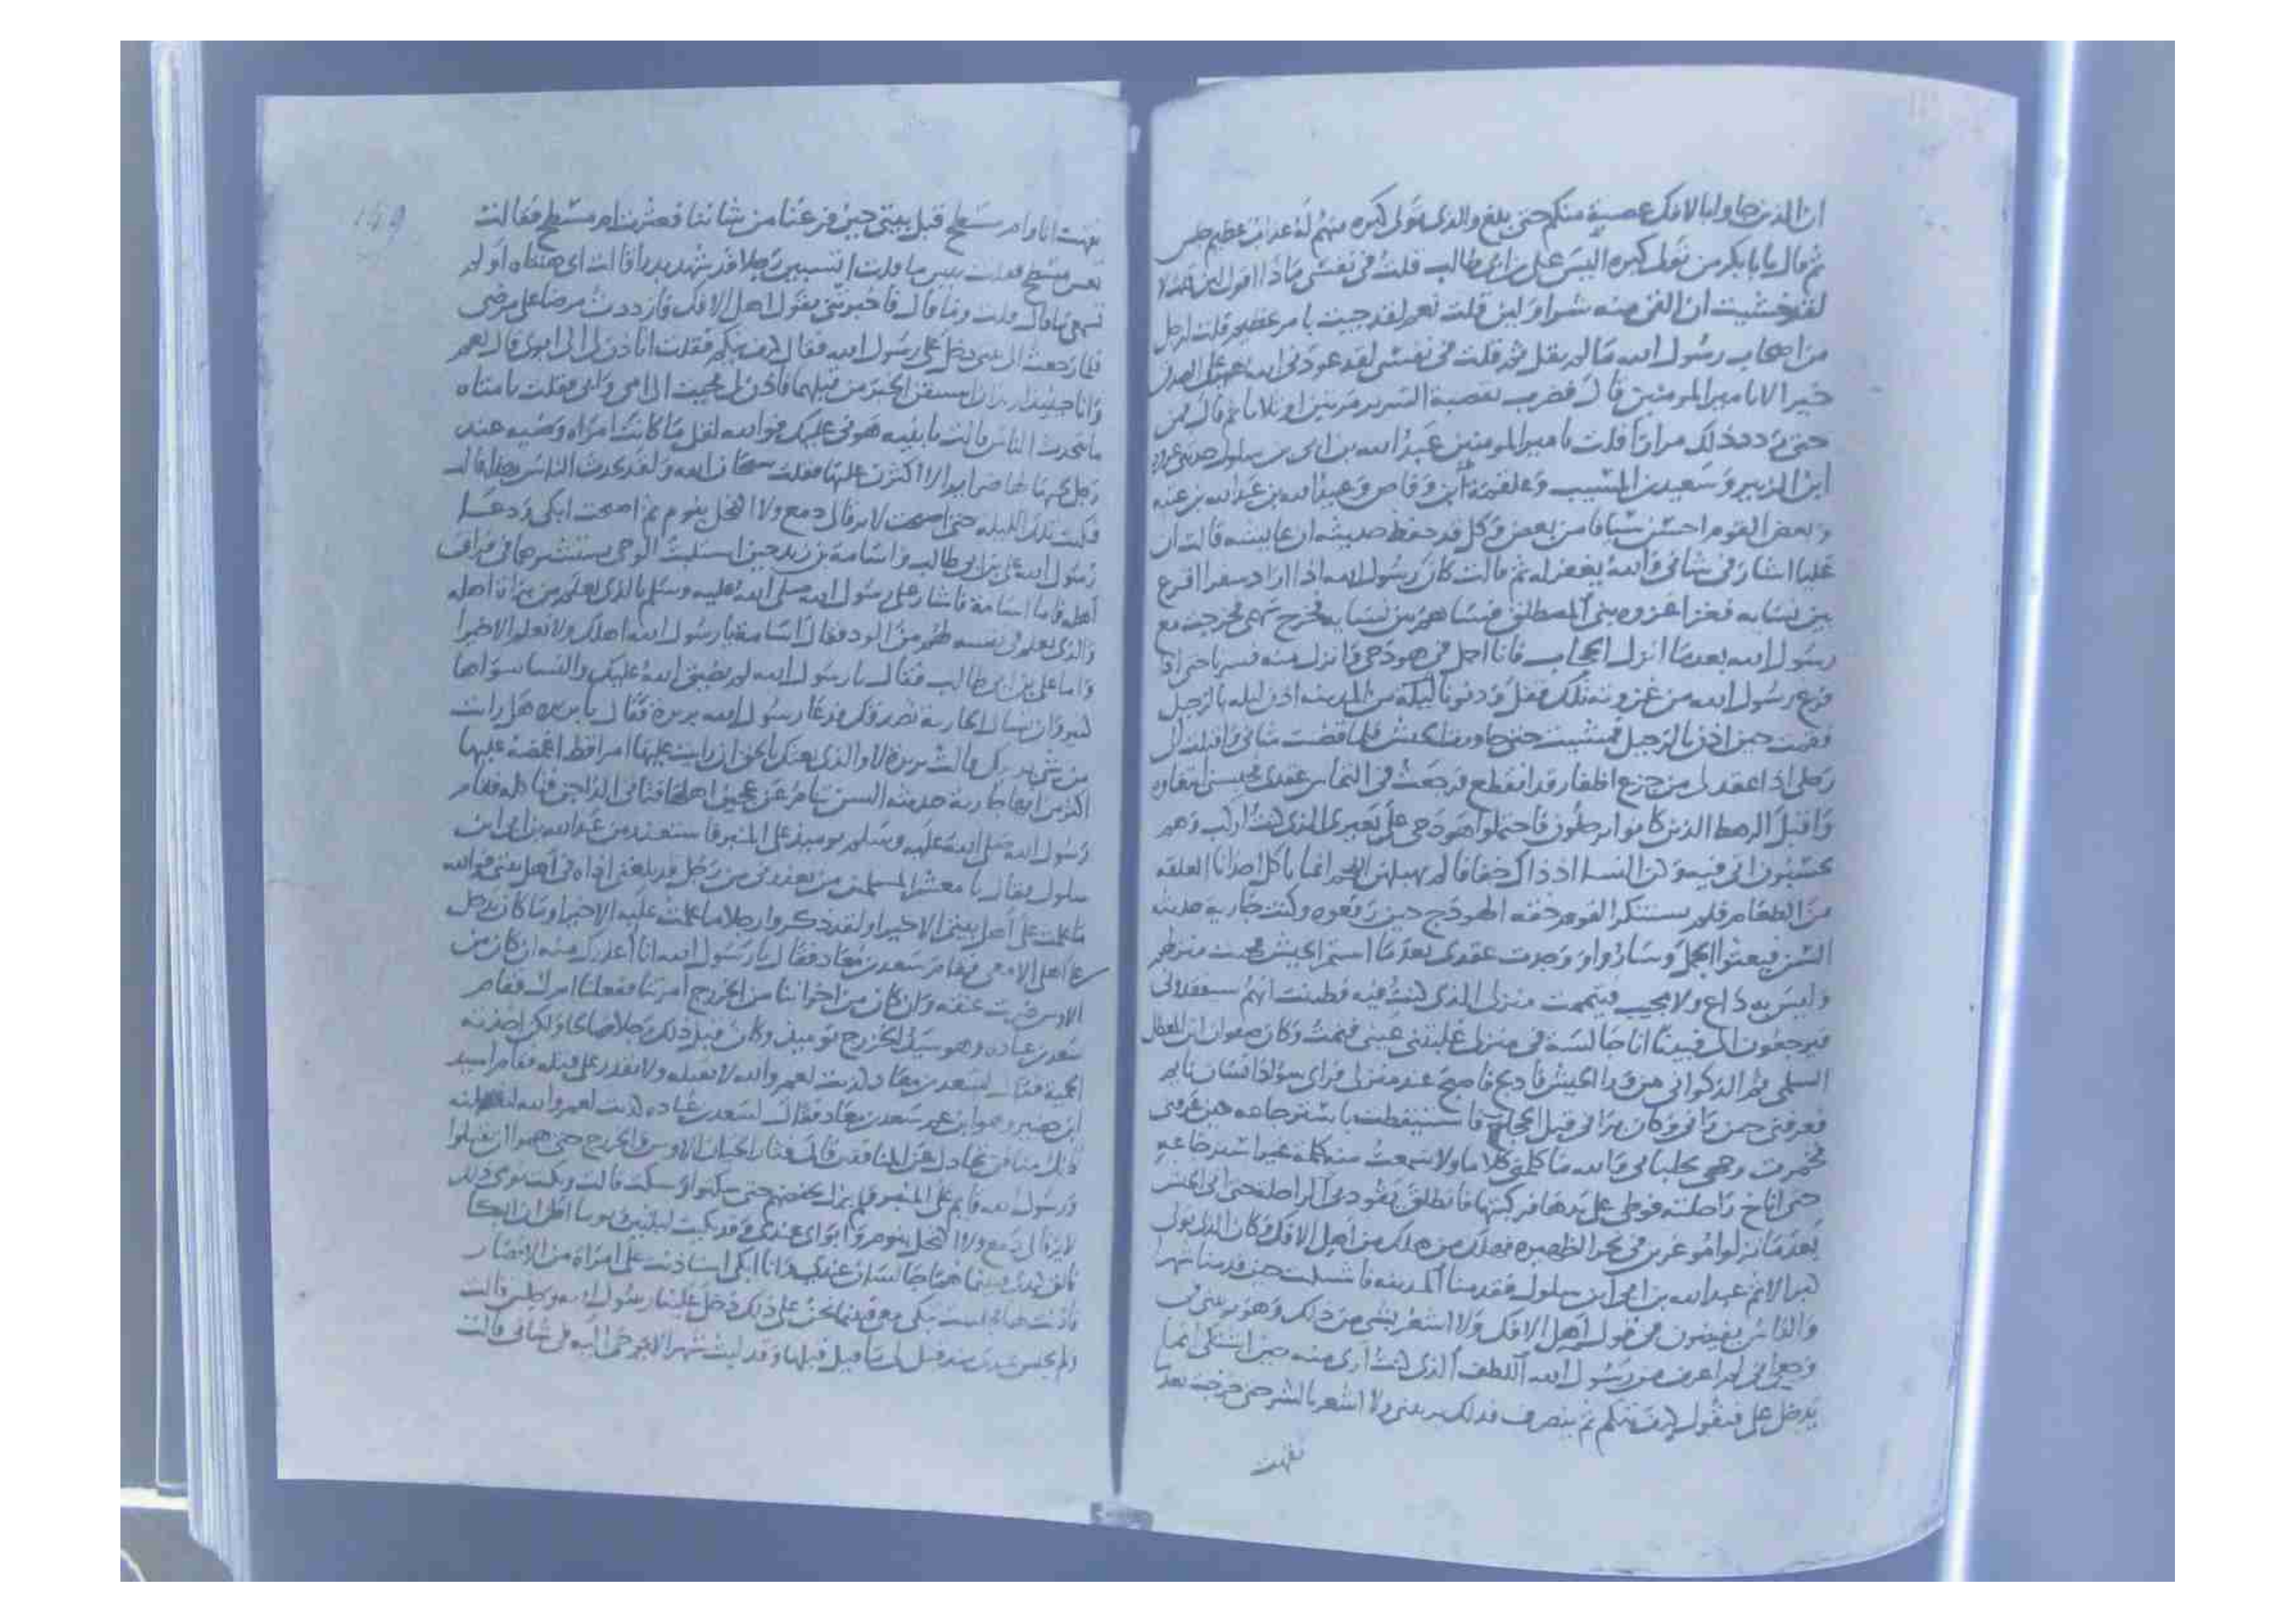 ان الذين جاوا بالافك عصبة منكم حتى بلغ والذى تولى كبره منهم له عذاب عظيم جلس
ثم قال يابا بكر من تولى كبره اليس على بن ابى طالب قلت فى نفسى ماذا اقول لين قلت لا
لقد خشيت ان القى منه شرا ولين قلت نعم لقد جيت بامر عظيم قلت لرجل
من اصحاب رسول الله ما لم يقل ثم قلت فى نفسى لقد عودنى الله على الصدق
خيرا لا يامير المومنين قال فضرب بقصبة السرير مرتين او ثلاثا ثم قال فمن
حتى ردد ذلك مرارا قلت يامير المومنين عبد الله بن ابى بن سلول حدثنى عروة
ابن الزبير وسعيد بن المسيب وعلقمة ابن وقاص وعبيد الله بن عبد الله بن عتبه
وبعض القوم احسن سياقا من بعض وكل قد حفظ حديثه ان عايشه قالت ان
عليا اشار فى شانى والله يغفر له ثم قالت كان رسول الله اذا اراد سفرا اقرع
بين نسايه فغزا غزوه بنى المصطلق فساهم بين نسايه فخرج سهمى فخرجت مع
رسول الله بعد ما انزل الحجاب فانا احمل فى هودجى وانزل منه فسرنا حتى اذا
فرغ رسول الله من غزوته تلك فقفل ودنونا ليلة من المدينه اذن ليله بالرحيل
فقمت حين اذن بالرحيل فمشيت حتى جاوزت الجيش فلما قضت شانى واقبلت الى
رحلى اذا عقد لى من جزع اظفار قد انقطع فرجعت فى التماس عقدى فحبسنى ابتغاوه
واقبل الرهط الذين كانوا يرحلون فاحتملوا هودجى على بعيرى الذى كنت اركب وهم
يحسبون انى فيه وكن النسا اذ ذاك خفافا لم يهبلهن اللحم انما ياكل احدانا العلقه
من الطعام فلم يستنكر القوم خفه الهودج حين رفعوه وكنت جاريه حديثه
السن فبعثوا الجمل وساروا ووجدت عقدى بعد ما استمر الجيش فجيت منزلهم
وليس به داع ولا مجيب فتيممت منزلى الذى كنت فيه وظننت انهم سيفقدونى
فيرجعون الى فبينا انا جالسة فى منزلى غلبتنى عينى فنمت وكان صفوان ابن المعطل
السلمى ثم الذكوانى من ورا الجيش فادلج فاصبح عند منزلى فراى سواد انسان نايم
فعرفنى حين رانى وكان يرانى قبل الحجاب فاستيقظت باسترجاعه حين عرفنى
فخمرت وجهى بجلبابى والله ما كلمنى كلاما ولا سمعت منه كلمة غير استرجاعه
حتى اناخ راحلته فوطى على يدها فركبتها فانطلق يقود بى الراحله حتى اتى الجيش
بعد ما نزلوا موغرين فى نحر الظهيره فهلك من هلك من اهل الافك وكان الذى تولى
كبر الاثم عبد الله بن ابى ابن سلول فقدمنا المدينه فاشتكيت حين قدمنا شهرا
والناس يفيضون فى قول اهل الافك ولا اشعر بشى من ذلك وهو يريبنى فى
وجعى انى لم اعرف من رسول الله اللطف الذى كنت ارى منه حين اشتكى انما
يدخل على فيقول كيف تيكم ثم ينصرف فذلك يريبنى ولا اشعر بالشر حتى خرجت بعد ما
نقهت
149
نقهت انا وام مسطح قبل بيتى حين فرغنا من شاننا فعثرت ام مسطح فقالت
تعس مسطح فقلت بيس ما قلت اتسبين رجلا قد شهد بدرا قالت اى هنتاه اولم
تسمعى ما قال قلت وما قال فاخبرتنى بقول اهل الافك فازددت مرضا على مرضى
فلما رجعت الى بيتى دخل على رسول الله فقال كيف تيكم فقلت اتاذن لى الى ابوى قال نعم
وانا حينيذ اريد ان استيقن الخبر من قبلهما فاذن لى فجيت الى امى وابى فقلت يا امتاه
ما يتحدث الناس قالت يا بنيه هونى عليك فوالله لقل ما كانت امراه وضيه عند
رجل يحبها لها ضراير الا اكثرن عليها فقلت سبحان الله ولقد تحدث الناس بهذا قالت
فبكيت تلك الليله حتى اصبحت لا يرقا لى دمع ولا اكتحل بنوم ثم اصبحت ابكى ودعا
رسول الله على بن ابى طالب واسامة بن زيد حين استلبث الوحى يستشيرهما فى فراق
اهله فاما اسامة فاشار على رسول الله صلى الله عليه وسلم بالذى يعلم من براة اهله
والذى يعلم فى نفسه لهم من الود فقال اسامة يا رسول الله اهلك ولا نعلم الا خيرا
واما على بن ابى طالب فقال يا رسول الله لم يضيق الله عليك والنسا سواها
كثير وان تسال الجارية تصدقك فدعا رسول الله بريرة فقال يا بريره هل رايت
من شى يريبك قالت بريرة لا والذى بعثك بالحق ان رايت عليها امرا قط اغمضه عليها
اكثر من انها جارية حديثه السن تنام عن عجين اهلها فتاتى الداجن فتاكله فقام
رسول الله صلى الله عليه وسلم يوميذ على المنبر فاستعذر من عبد الله بن ابى ابن
سلول فقال يا معشر المسلمين من يعذرنى من رجل قد بلغنى اذاه فى اهل بيتى فوالله
ما علمت على اهل بيتى الا خيرا ولقد ذكروا رجلا ما علمت عليه الا خيرا وما كان يدخل
على اهلى الا معى فقام سعد بن معاذ فقال يا رسول الله انا اعذرك منه ان كان من
الاوس ضربت عنقه وان كان من اخواننا من الخزرج امرتنا ففعلنا امرك فقام
سعد بن عباده وهو سيد الخزرج يوميذ وكان قبل ذلك رجلا صالحا ولكن اخذته
الحمية فقال لسعد بن معاذ كذبت لعمر والله لا تقتله ولا تقدر على قتله فقام اسيد
ابن حضير وهو ابن عم سعد بن معاذ فقال لسعد بن عباده كذبت لعمر والله لنقتلنه
فانك منافق تجادل عن المنافقين قال فثار الحيان الاوس والخزرج حتى هموا ان يقتتلوا
ورسول الله قايم على المنبر فلم يزل يخفضهم حتى سكتوا وسكت قالت وبكيت يومى ذلك
لا يرقا لى دمع ولا اكتحل بنوم وابواى عندى وقد بكيت ليلتين ويوما اظن ان البكا
فالق كبدى فبينما هما جالسان عندى وانا ابكى استاذنت على امراة من الانصار
فاذنت لها فجلست تبكى معى فبينما نحن على ذلك دخل علينا رسول الله وجلس قالت
ولم يجلس عندى منذ قيل لى ما قيل قبلها وقد لبث شهرا لا يوحى اليه فى شانى قالت